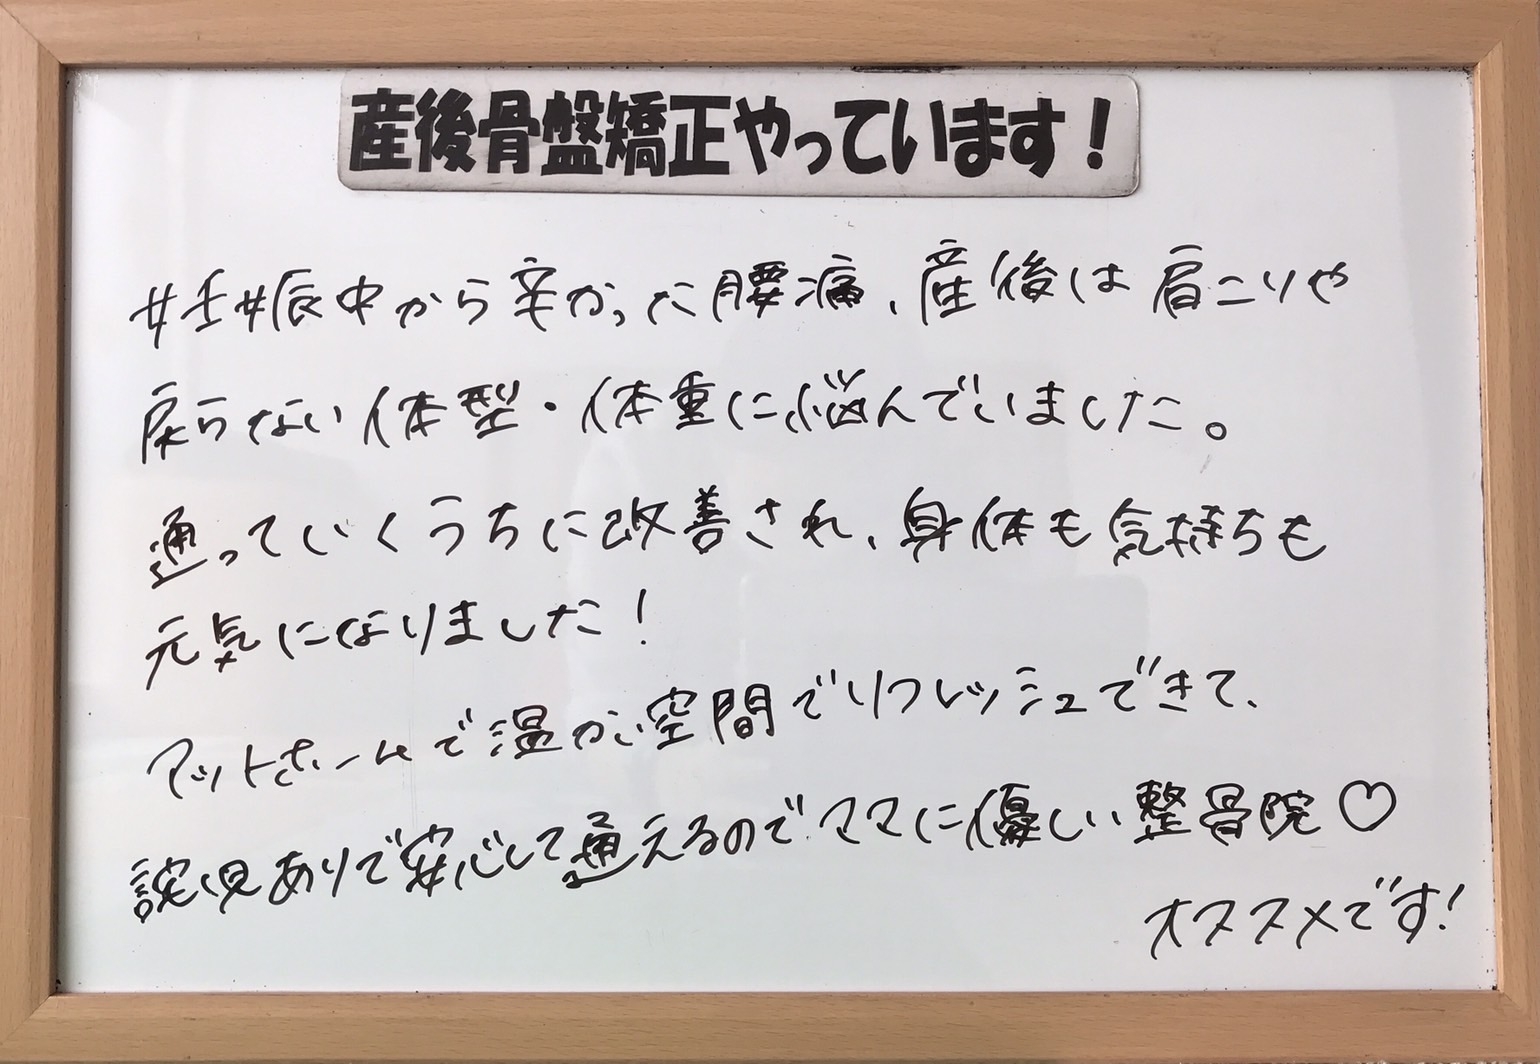 産後骨盤矯正やっています!
妊娠中から辛かった腰痛、産後は肩こりや
戻らない体型・体重に悩んでいました。
通っていくうちに改善され、身体も気持ちも
元気になりました!
アットホームで温かい空間でリフレッシュできて、
託児ありで安心して通えるのでママに優しい整骨院♡
オススメです!